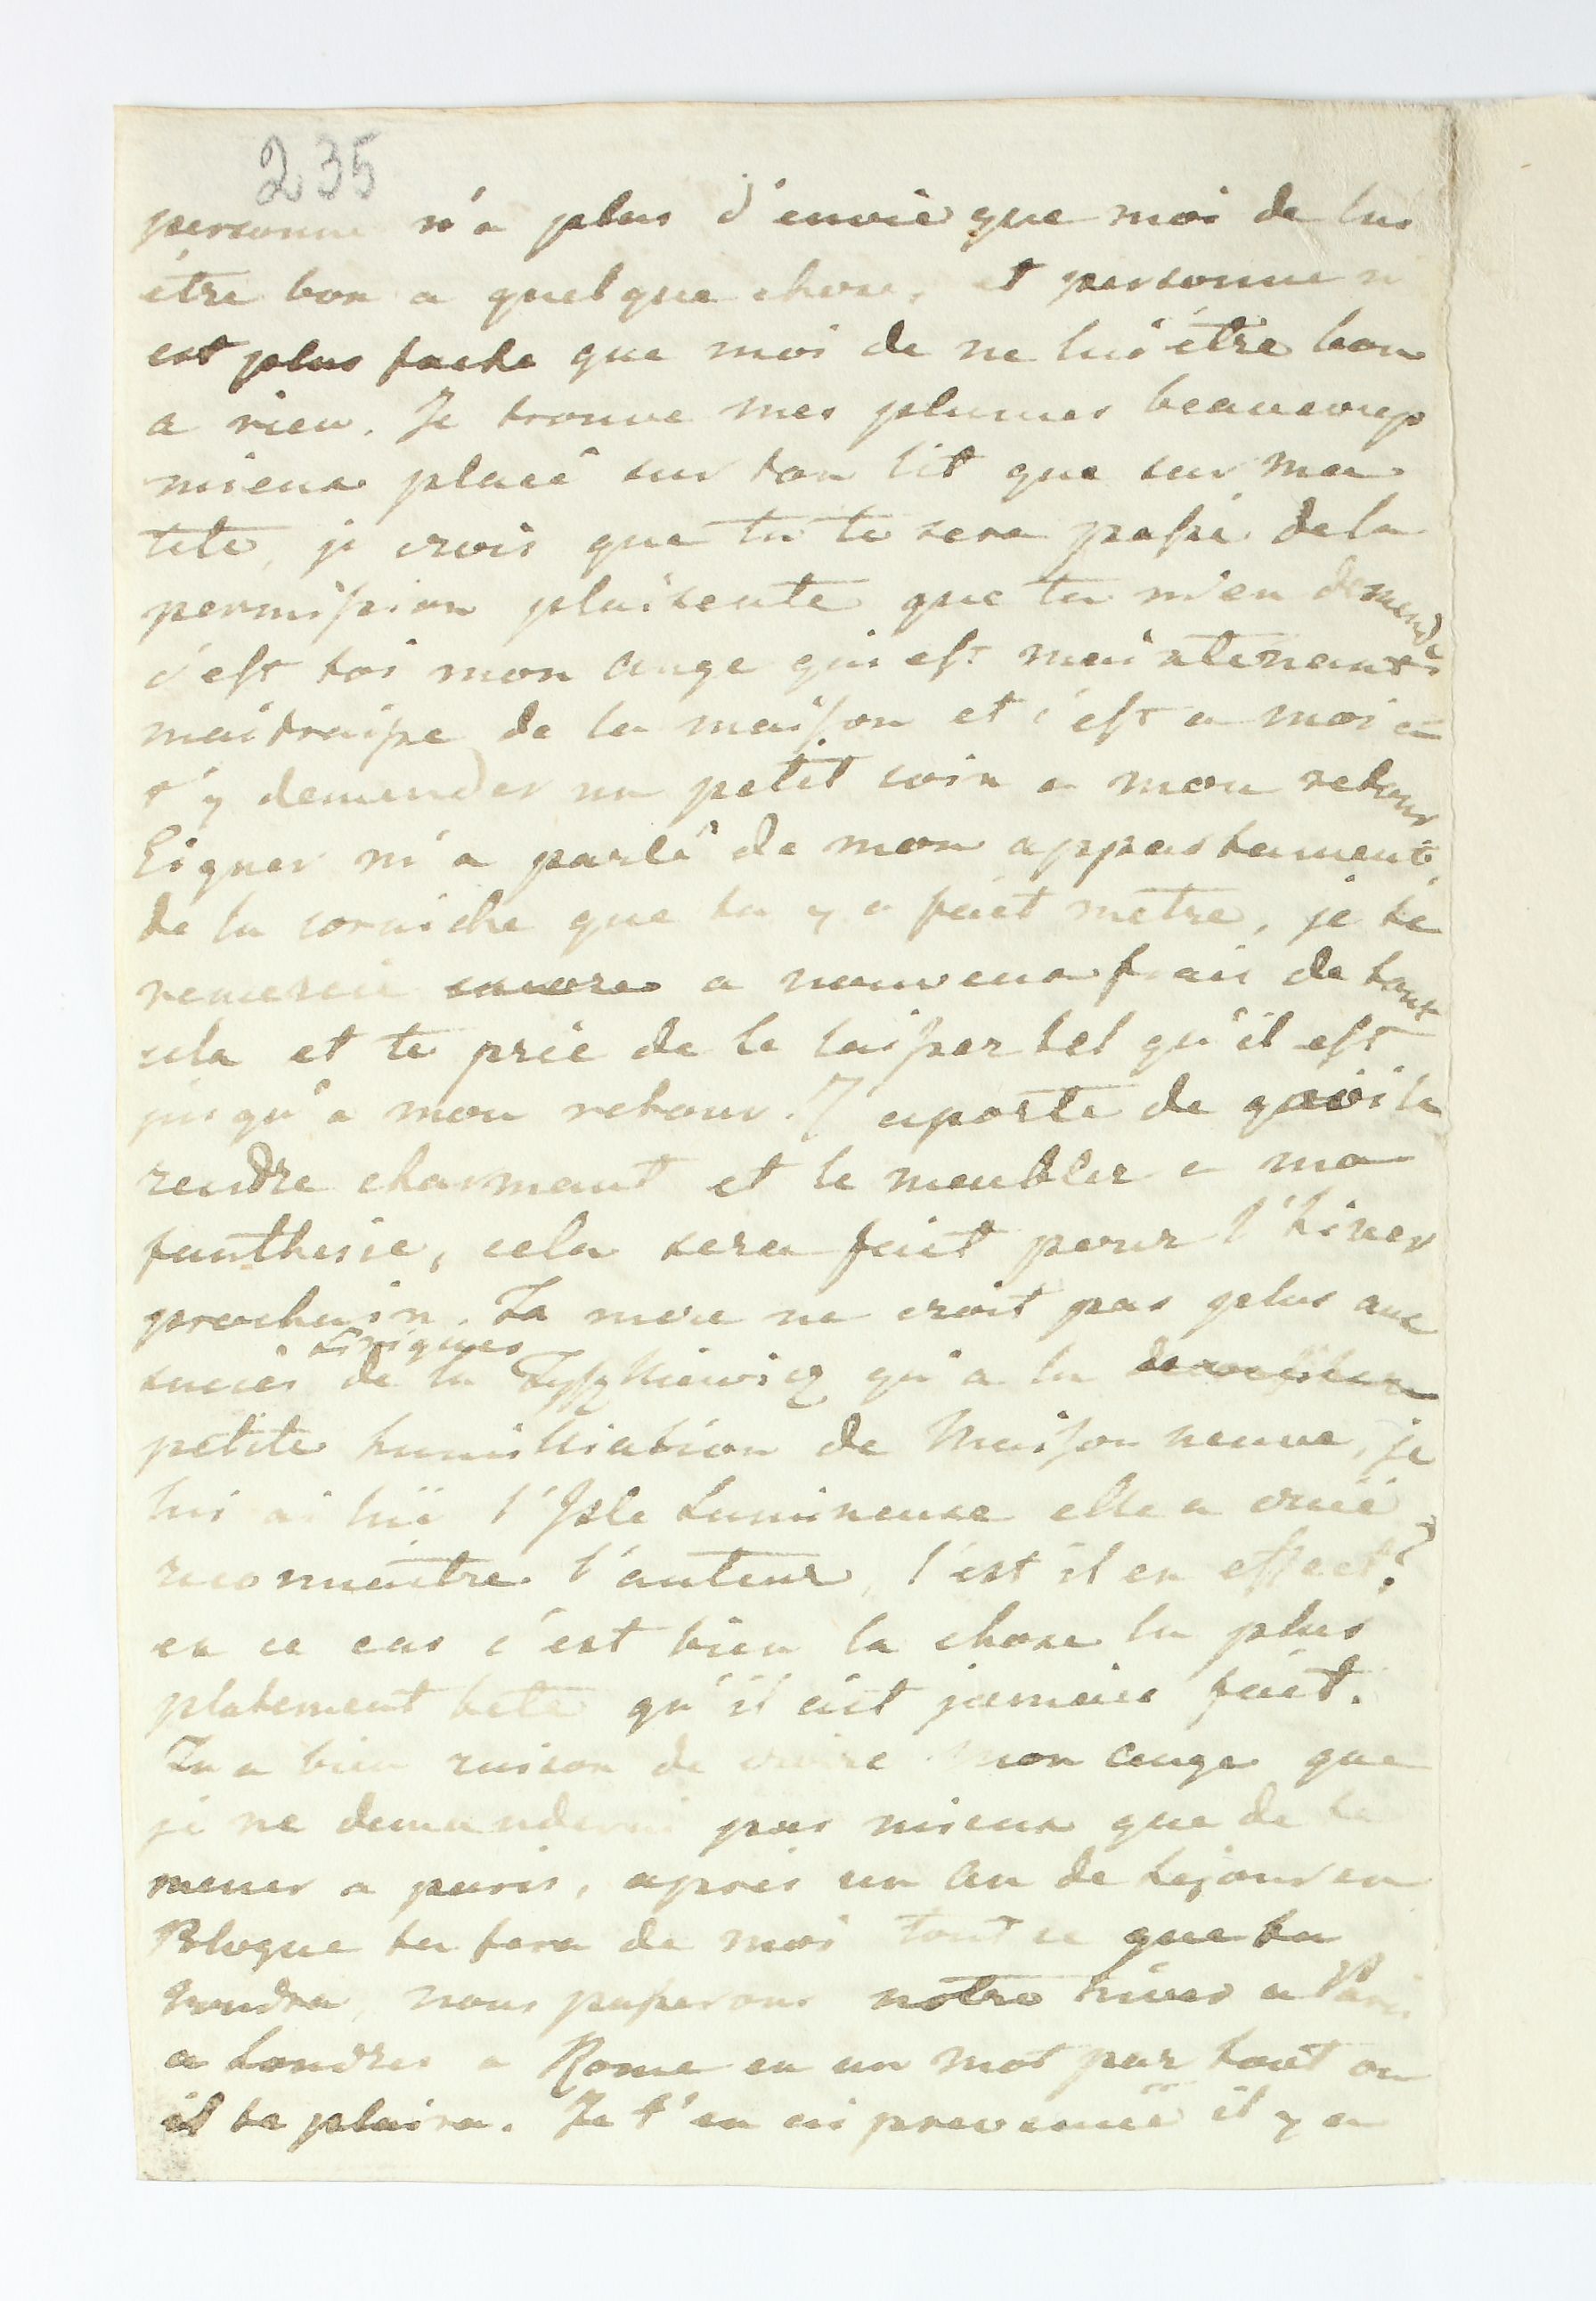 235
personne n'a plus d'envie que moi de lui
être bon a quelque chose, et personne n
est plus faché que moi de ne lui être bon
a rien. Je trouve mes plumes beaucoup
mieux placé sur ton lit que sur ma
tete, je crois que tu te sera passé de la
permission plaisente que tu m'en demende
c'est toi mon ange qui est maintenant
maitraisse de la maison et c'est a moi a
t'y demender un petit coin a mon retour
Eigner m'a parlé de mon appartement,
de la corniche que tu y a fait metre, je te
remercie encore a nouveaux frais de tout
cela et te prie de le laisser tel qu'il est
jusqu'a mon retour. J'aporte de quoi le
rendre charmant et le meubler a ma
fanthesie, cela sera fait pour l'hiver
prochain. Ta mere ne croit pas plus aux
succès liriques de la Tyszkiewicz qu'a la
petite humilliation de Maison neuve, je
lui ai luë l'Isle Lumineuse elle a cruë
reconnaitre l'auteur, l'est il en effect?
en ce cas c'est bien la chose la plus
platement bete qu'il ait jamais fait.
Tu a bien raison de croire mon ange que
je ne demanderai pas mieux que de te
mener a paris, après un an de sejour en
Pologne tu fera de moi tout ce que tu
voudra, nous passerons notre hiver a Paris
a Londres a Rome en un mot par tout ou
il te plaira. Je t'en ai prevenuë il y a